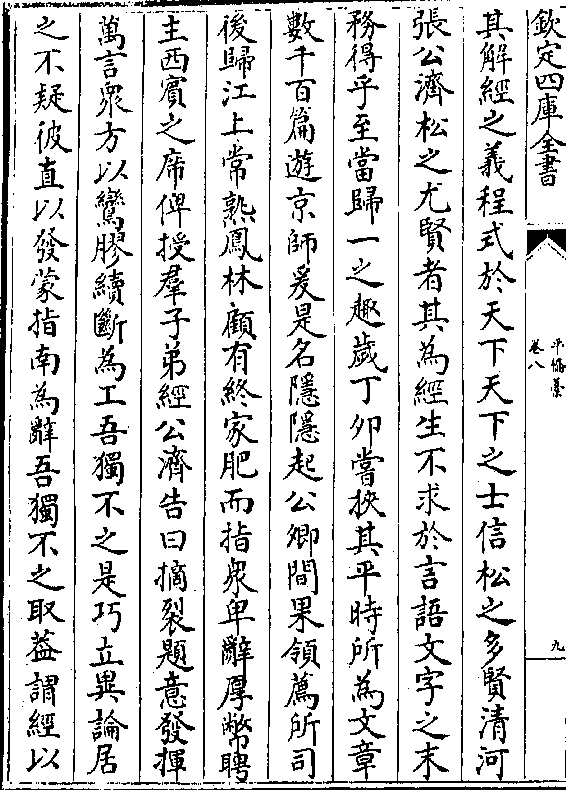 欽定四庫全書
卷八
九
其解經之義程式於天下天下之士信松之多賢清河
張公濟松之尤賢者其為經生不求於言語文字之末
務得乎至當歸一之趣歲丁卯嘗挾其平時所為文章
數千百篇遊京師爰是名隱隱起公卿間果領薦所司
後歸江上常熟鳳林顧有終家肥而指衆卑辭厚幣聘
主西賓之席俾授羣子弟經公濟告曰摘裂題意發揮
萬言衆方以鸞膠續斷為工吾獨不之是巧立異論居
之不疑彼直以發蒙指南為辭吾獨不之取葢謂經以